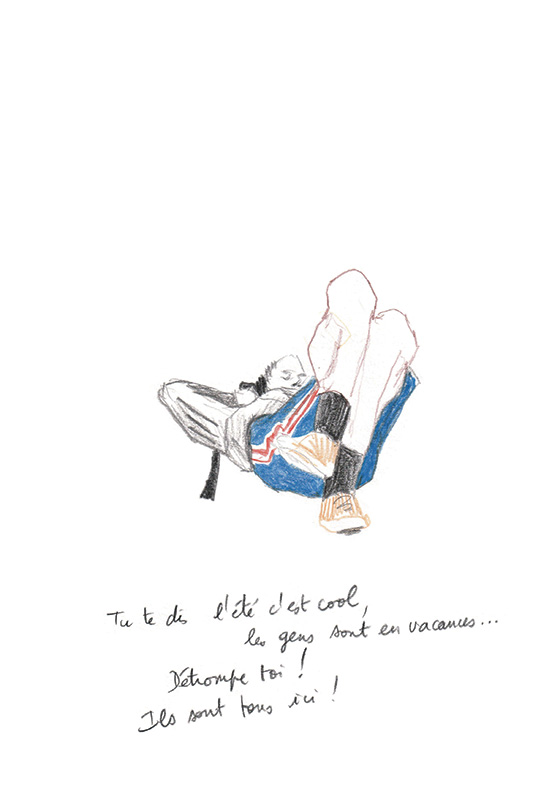 Tu te dis l'été c'est cool,
les gens sont en vacances...
Détrompe toi !
Ils sont tous ici !